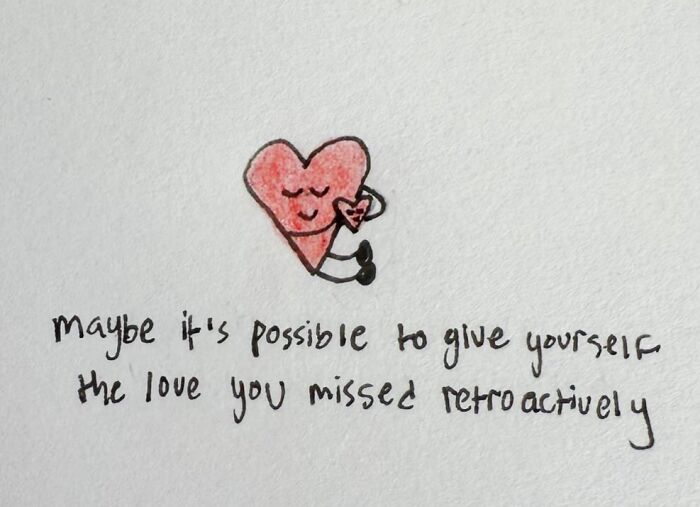 maybe it's possible to give yourself
the love you missed retroactively